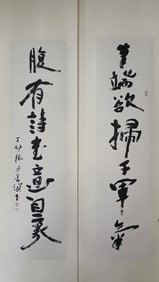 筆端欲掃千軍氣
腹有詩書意自豪